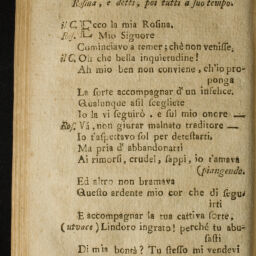 Rosina, e detti, poi tutti a suo tempo.
il C. Ecco la mia Rosina.
Ros. E Mio Signore
Cominciavo a temer; chè non venisse,
il C. Oh che bella inquietudine!
Ah mio ben non conviene, ch'io pro-
ponga
La sorte accompagnar d'un infelice.
Qualunque asil scegliete
Io la vi seguirò, e sul mio onore —
Ros. Và, non giurar malnato traditore —
Io t'aspettavo sol per detestarti.
Ma pria d'abbandonarti
Ai rimorsi, crudel, sappi, io t'amava
(piangendo.
Ed altro non bramava
Questo ardente mio cor che di segu-
irti
E accompagnar la tua cattiva sorte,
(ut voce) Lindoro ingrato! perchè tu abu-
sasti
Di mia bontà? Tu stesso mi vendevi